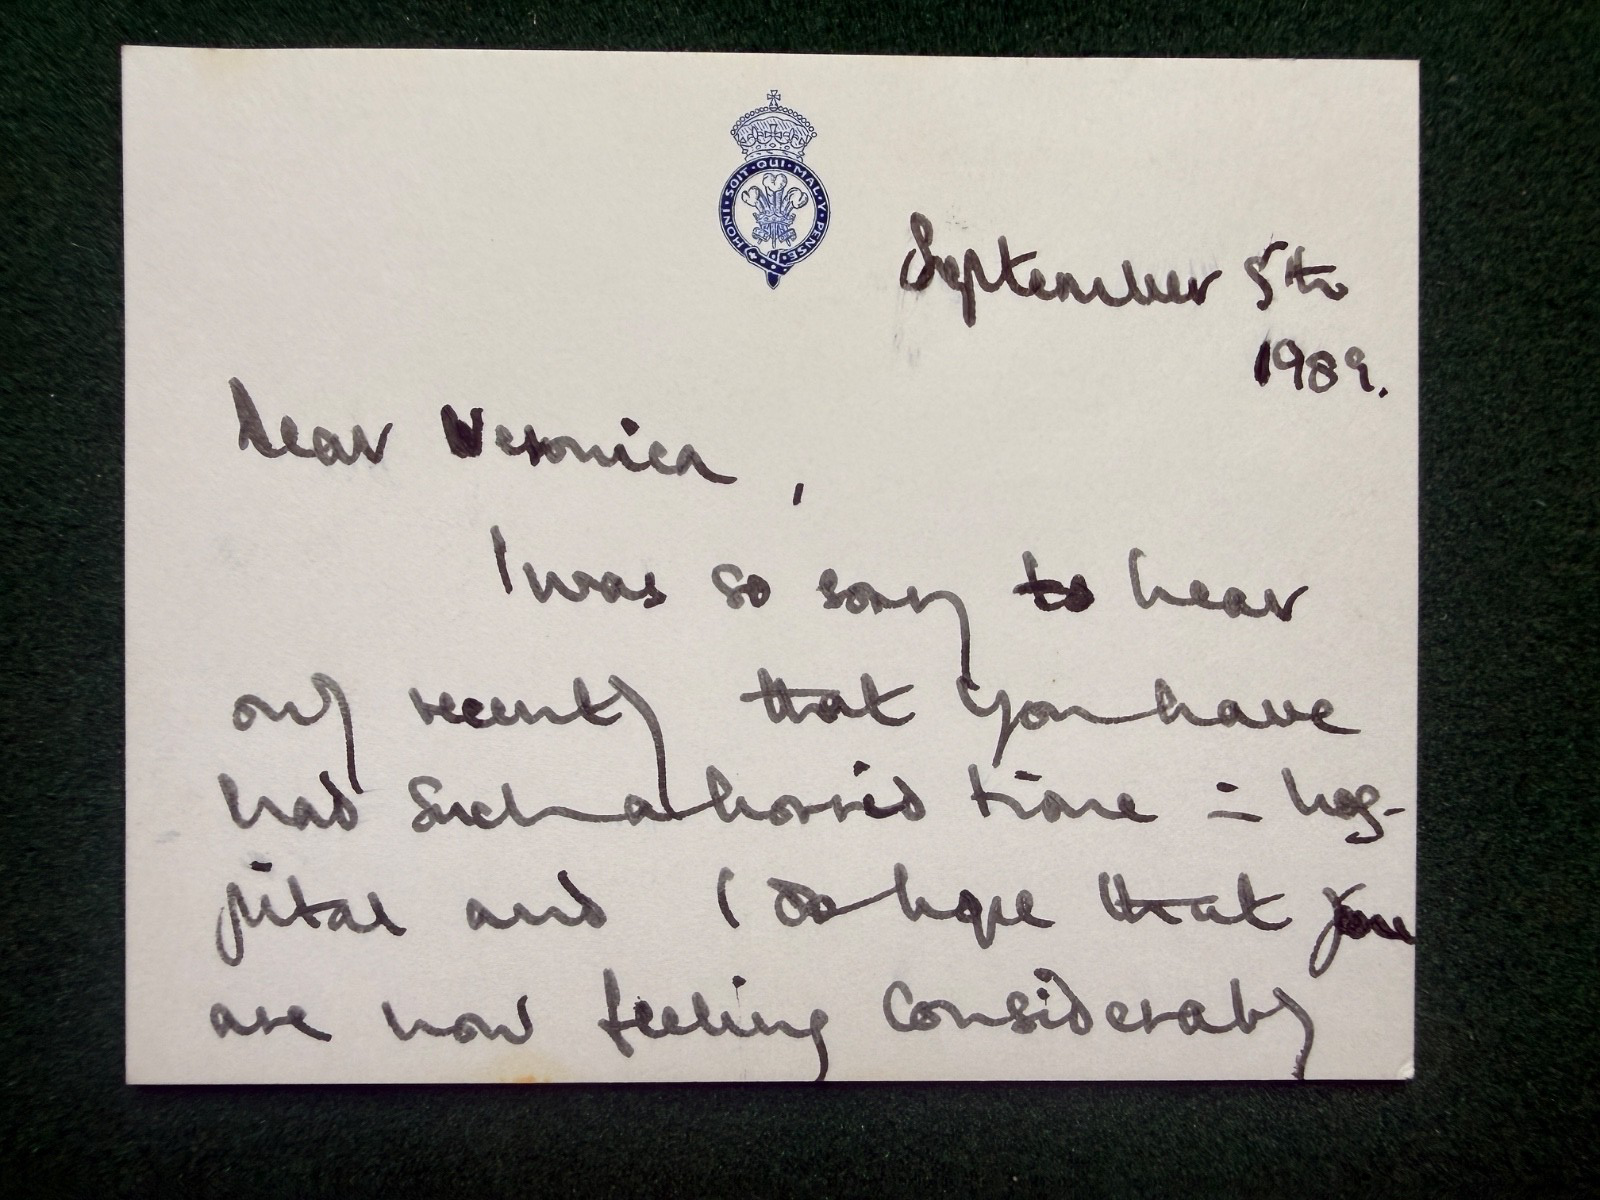 HONI · SOIT · QUI · MAL · Y · PENSE
September 5th
1989.
Dear Veronica,
I was so sorry to hear
only recently that you have
had such a horrid time in hos-
pital and I do hope that you
are now feeling considerably